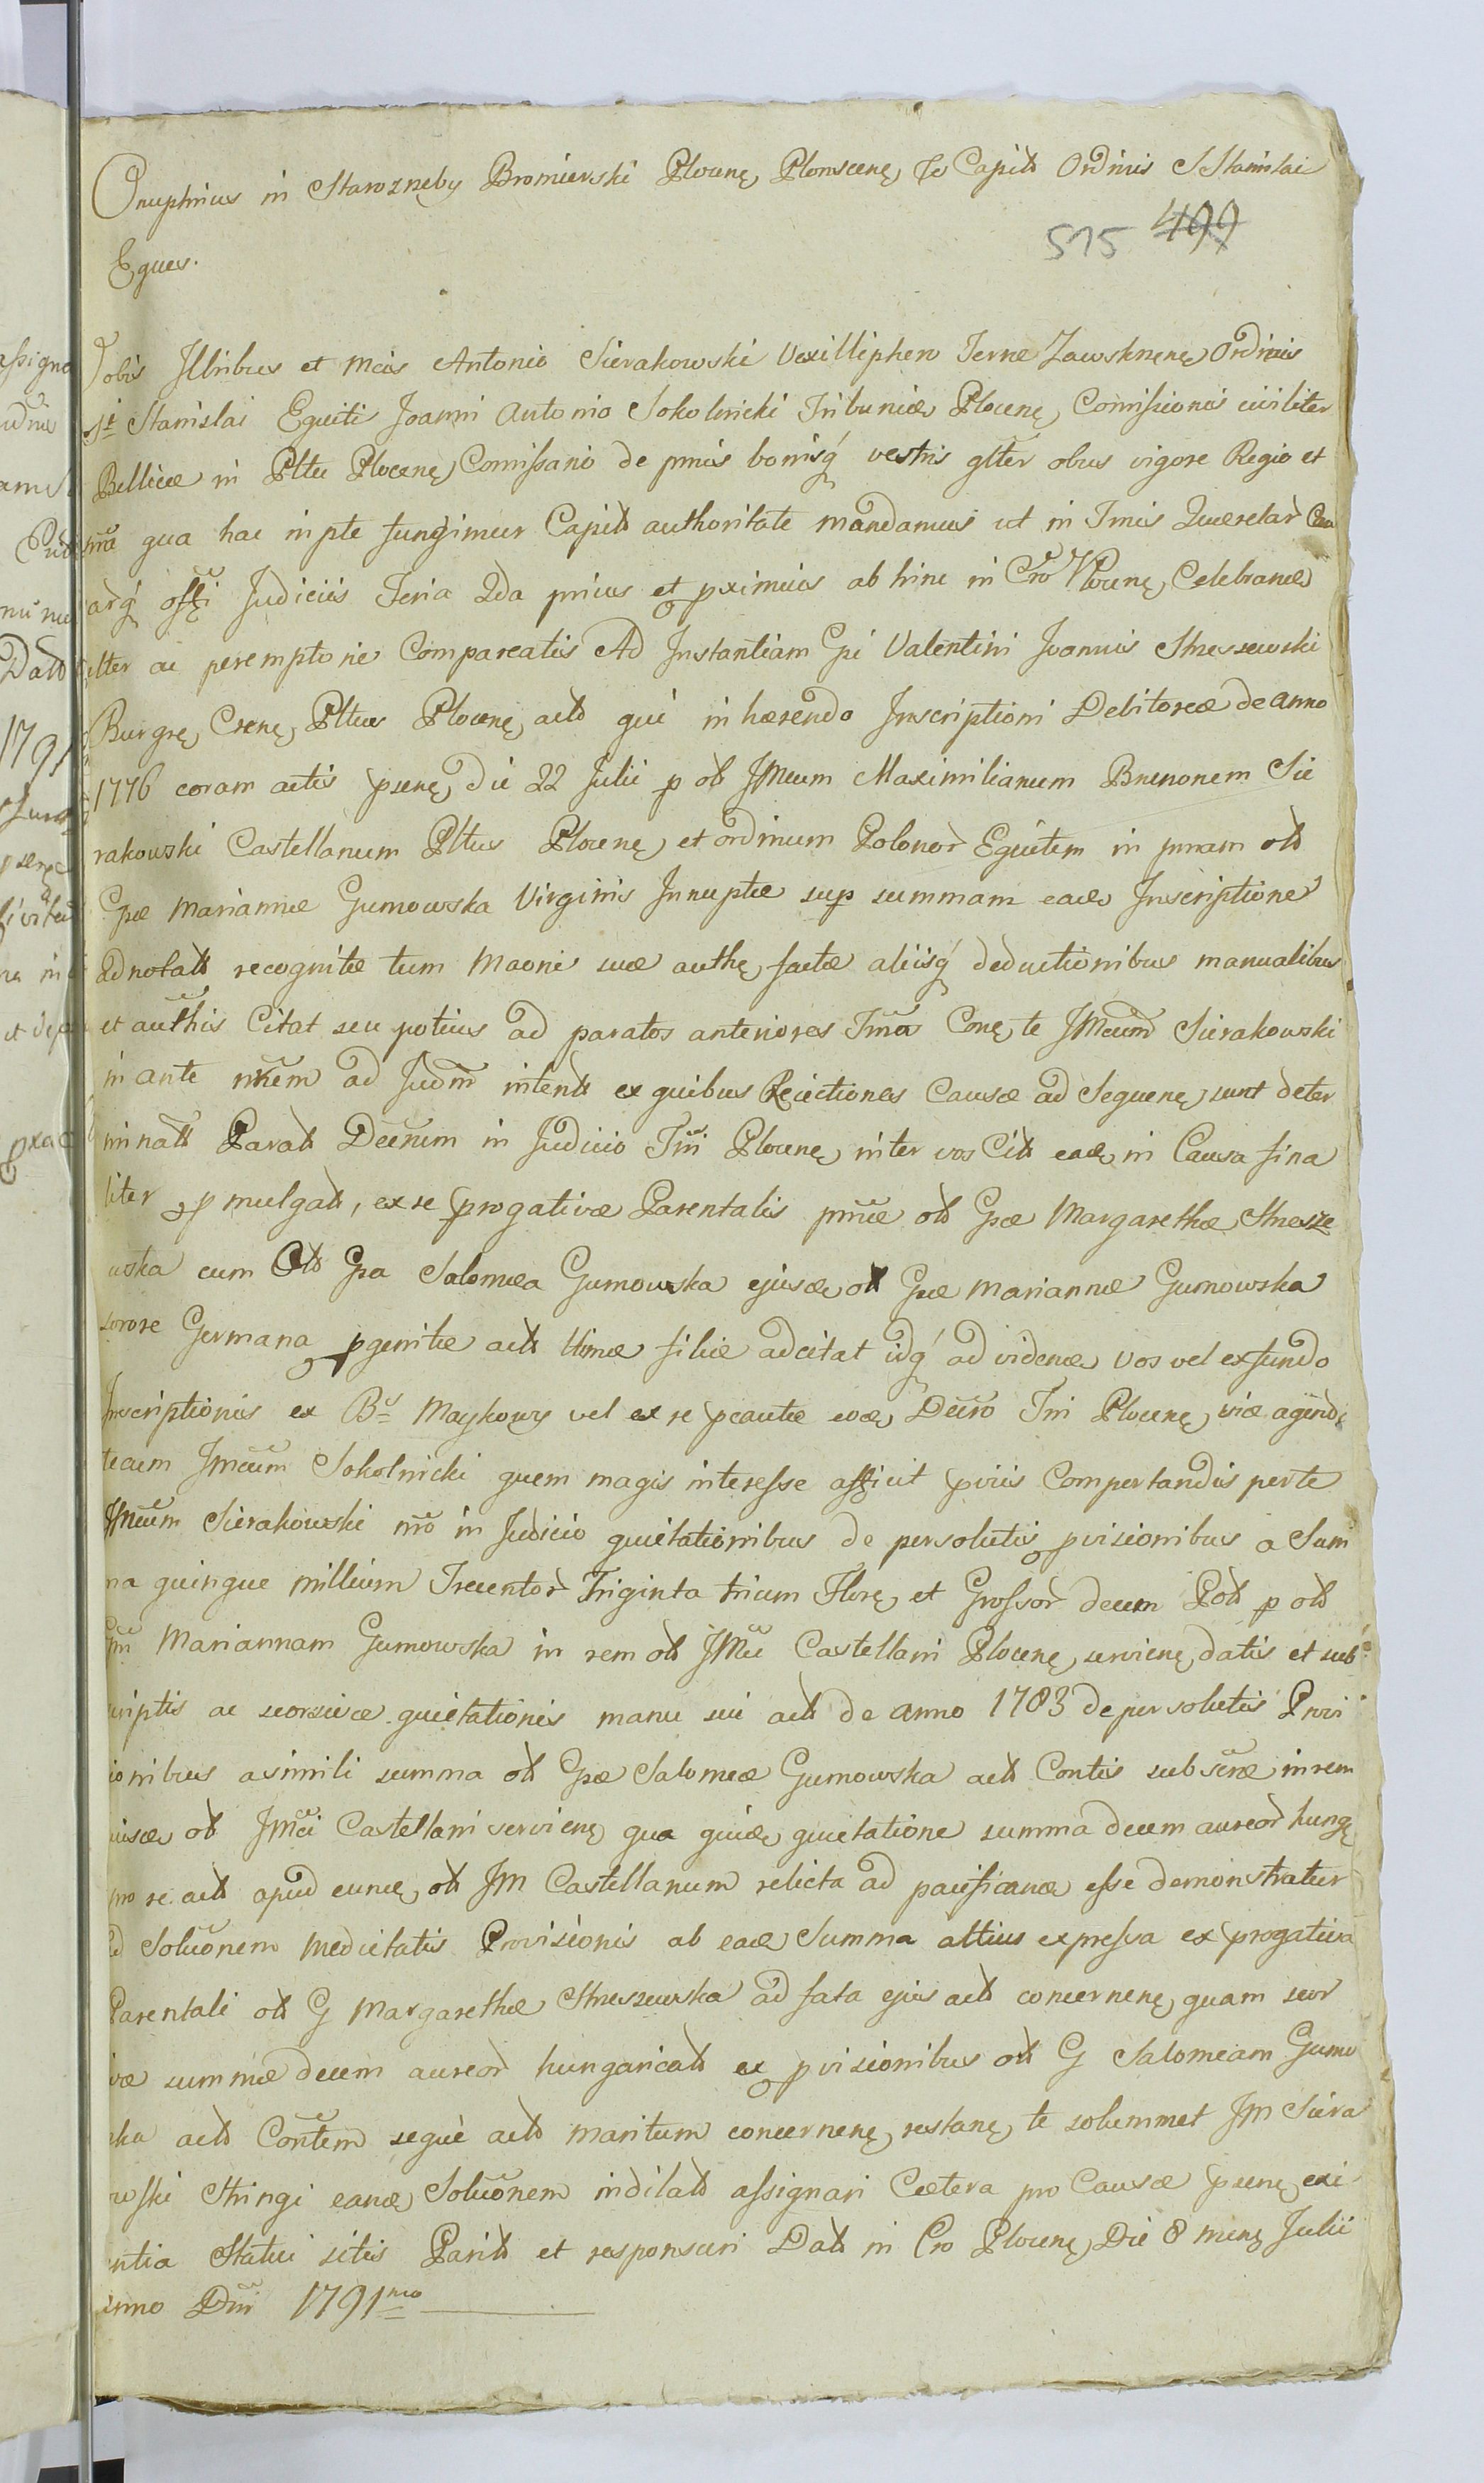 Onuphrius in Starozręby Bromierski Plocenę, Plonscenę, &c Capitt Ordinis S Stanislai
515 499
Eques.
Vobis Illribus et Mcis Antonio Sierakowski Vexilliphero Terræ Zawskrnenę Ordinis
Sti Stanislai Equiti Joanni Antonio Sokolnicki Tribunidæ Plocenę, Comissionis civiliter
Bellicæ in Pltu Plocenę, Comissario de pnnis bonisq́ vestris glter obus vigore Regio et
nrã qua hac in pte fungimur Capitt authoritate mandamus ut in Trnis Querelar̃ Cau
arq́ offi Judiciis Feria 2da prius et pximius ab hinc in Cro Plocenę, Celebrandæ
lter ac peremptorie Compareatis Ad Instantiam Gsi Valentini Joannis Strzeszewski
Burgrę, Crenę, Pltus Plocenę, actt qui inhærendo Inscriptioni Debitoreæ de anno
1776 coram actis psenę, die 22 Julii p ott JMcum Maximilianum Brunonem Sie
rakowski Castellanum Pltus Plocenę, et ordinum Polonor Equitem in pnnam ott
Gsæ Mariannæ Gumowska Virginis Innuptæ sup summam eadæ Inscriptione
adnotatt recognitæ tum Maonis suæ authę, factæ aliisq́ deductionibus manualibus
et authis Citat seu potius ad paratos anteriores Trmos Conę, te JMcum Sierakowski
in ante nrem ad Judm intentt ex quibus Reiectiones Causæ ad Sequenę, sunt deter
minatt Paratt Decrum in Judicio Trni Plocenę, inter vos Citt eadę, in Causa fina
liter pmulgatt, ex re prrogativæ Parentalis pnnæ ott Gsæ Margarethæ Strzesze
wska cum Ott Gsa Salomea Gumowska ejusdæ ott Gsæ Mariannæ Gumowska
sorore Germana pgenitæ actt Ultimæ filiæ adcitat idq́ ad videndæ vos vel ex fundo
Inscriptionis ex Br= Maykowy vel ex re pcautæ eodæ, Decro Trni Plocenę, viæ agendi
tecum Jmcum Sokolnicki quem magis interesse afficit pviis Comportandis per te
JMcum Sierakowski nro in Judicio quietationibus de persolutis pvisionibus a Sum
ma quinque millium Trecentor Triginta trium Florę, et Grossor decem Pott p ott
Gsm Mariannam Gumowska in rem ott JMci Castellani Plocenę, servienę, datis et sub
scriptis ac seorsivæ quietationis manu sui actt de anno 1783 de persolutis Provi
ionibus a simili summa ott Gsæ Salomeæ Gumowska actt Contis subscræ in rem
uisdæ ott JMci Castellani servienę, qua quidę, quietatione summa decem aureor hungę,
pro re actt apud eundę, ott JM Castellanum relicta ad pacificandæ esse demonstratur
ad Soluõnem medietatis Provisionis ab eadæ Summa altius expressa ex prrogativa
Parentali ott G Margarethæ Strzeszewska ad fata ejus actt concernenę, quam seor
ivæ summæ decem aureor hungaricatt ex pvisionibus ott G Salomeam Gumo
ska actt Contem seque actt maritum concernenę, restanę, te solummet JM Siera
wski Stringi eandæ, Soluõnem indilatt assignari Cætera pro Causæ psenę, exi
entia Statui sitis Paritt et responsuri Datt in Cro Plocenę, Die 8 mensę Julii
Anno Dni 1791mo